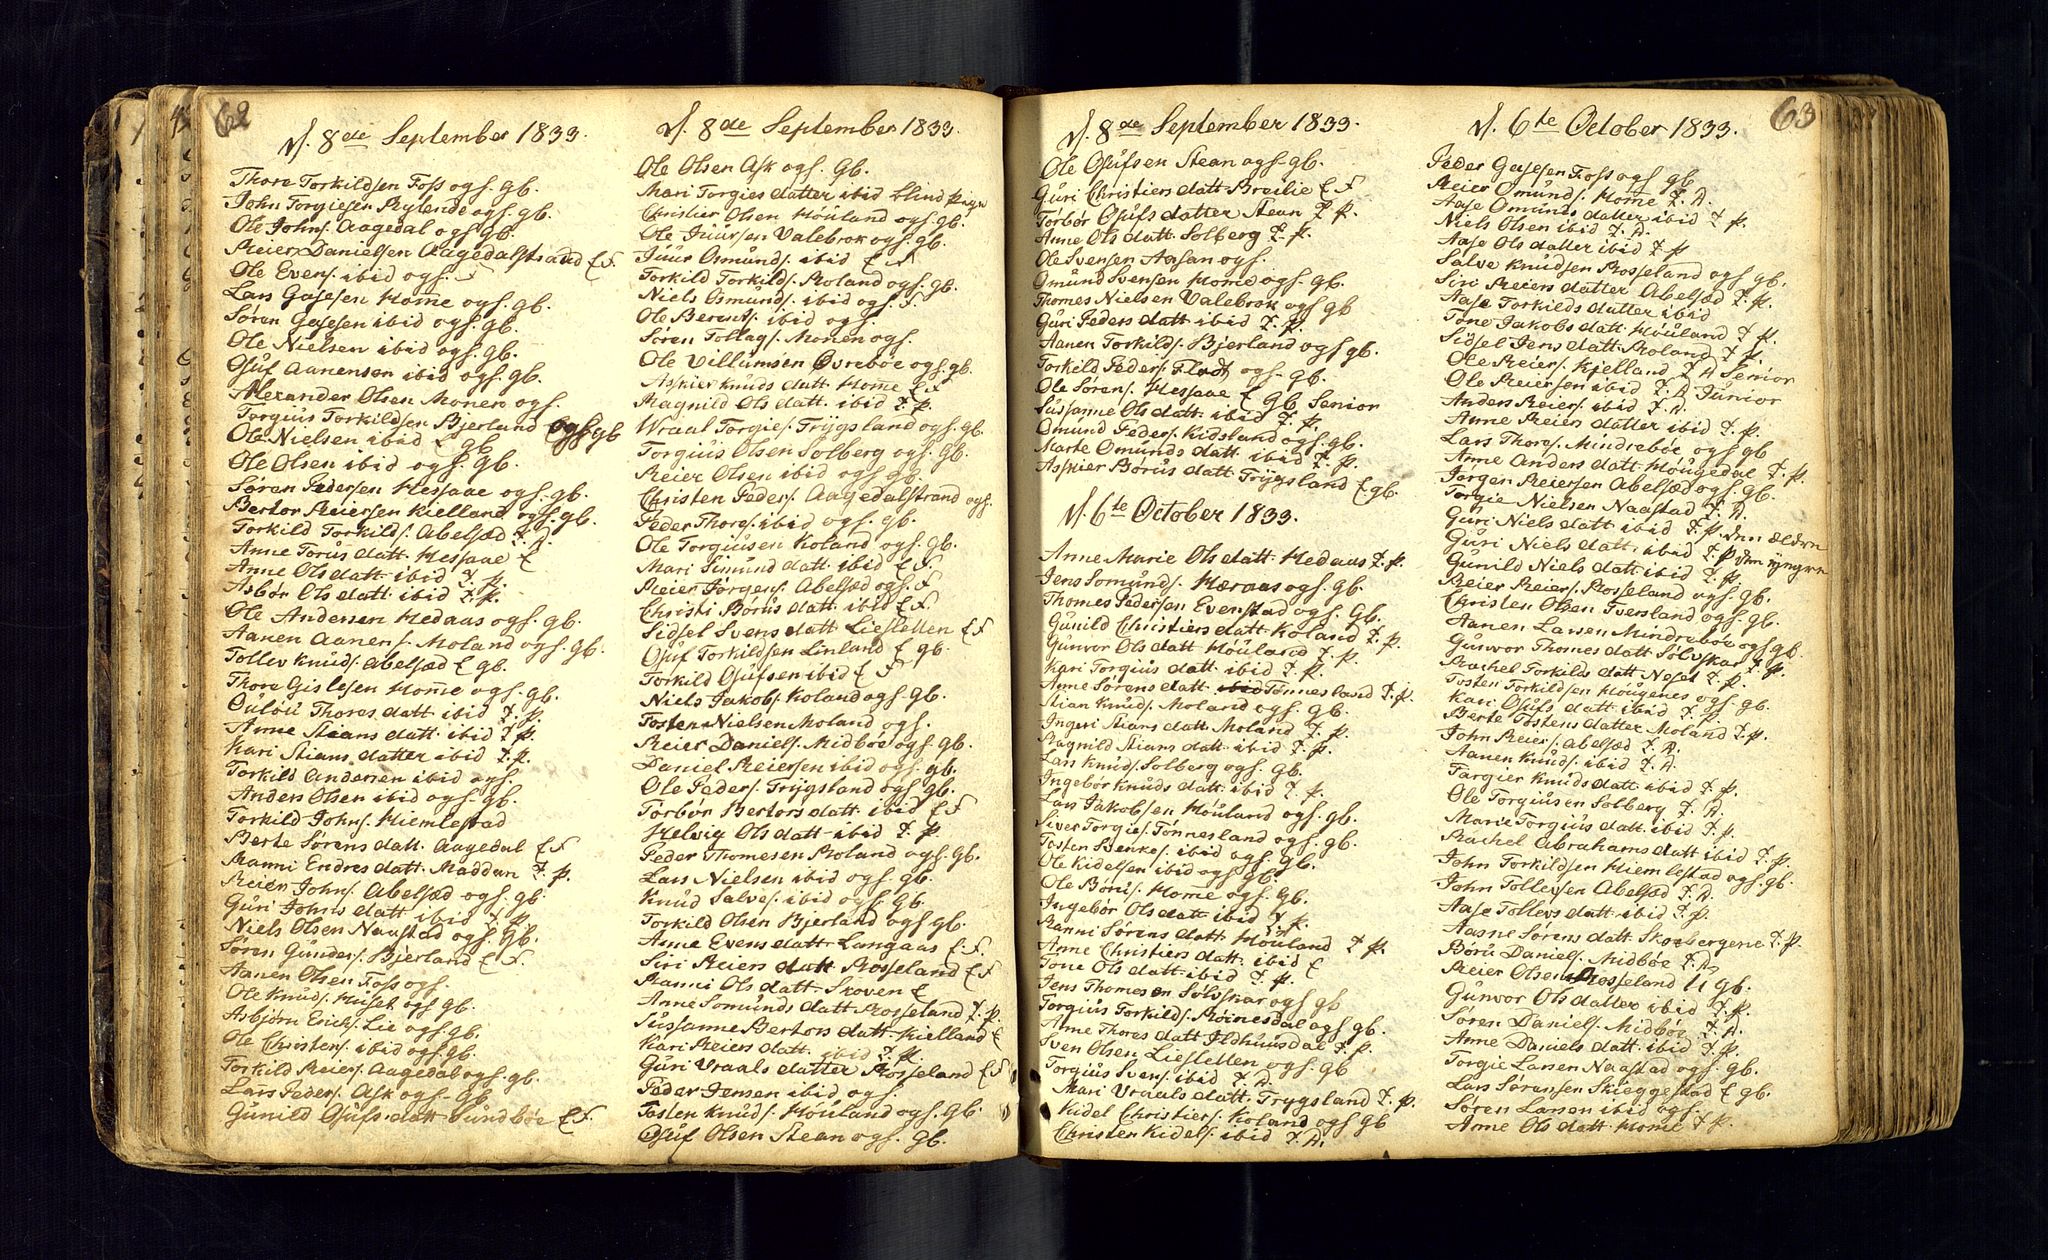 62
d. 8de September 1833.
Thore Torkildsen Foss ogf. gb.
John Torgiesen Rylende ogf. gb.
Ole Johns. Aagedal ogf. gb.
Reier Danielsen Aagedalstrand E F
Ole Evens. ibid ogf. F
Lars Gasesen Home ogf. gb.
Søren Gasesen ibid ogf. gb.
Ole Nielsen ibid ogf. gb.
Osuf Aanensen ibid ogf. gb.
Alexander Olsen Monen ogf.
Torgius Torkildsen Bjerland ogf gb
Ole Nielsen ibid E gb
Ole Olsen ibid ogf. gb.
Søren Pedersen Hessaae ogf. gb.
Bertor Reiersen Kielland ogf. gb.
Torkild Torkilds. Abelsæd T. D.
Anne Torus datt. Hessaae E
Anne Ols datt. ibid T. p.
Asbør Ols datt. ibid T. p.
Ole Andersen Hedaas ogf. gb.
Aanen Aanens. Moland ogf. gb.
Tollev Knuds. Abelsæd E gb.
Thore Gislesen Home ogf. gb.
Oulou Thores datt ibid T. p.
Anne Steans datt ibid T. p.
Kari Stians datter ibid T. p.
Torkild Andersen ibid ogf.
Anders Olsen ibid ogf. gb.
Torkild Johns. Hiemlestad
Berte Sørens datt. Aagedal E F
Ranni Endres datt. Haddan T. p.
Reier Johns. Abelsæd ogf gb.
Guri Johns datt ibid T. p.
Niels Olsen Naastad ogf. gb.
Søren Gunders. Bjerland E F.
Aanen Olsen Foss ogf.
Ole Knuds. Huset ogf gb.
Asbjørn Erichs. Lie ogf. gb.
Ole Christens. ibid ogf. gb.
Torkild Reiers. Aagedal ogf. gb.
Lars Peders. Ask ogf. gb
Gunild Osufs. datt Sundbøe E F.
d. 8de September 1833.
Ole Olsen Ask ogf. gb.
Mari Torgies datter ibid blind pige
Christier Olsen Houland ogf. gb.
Ole Juursen Valebrok ogf. gb.
Juur Osmunds. ibid E F
Torkild Torkilds. Roland ogf. gb.
Niels Osmunds. ibid ogf. F
Ole Berents. ibid ogf.
Søren Tollags. Monen ogf.
Ole Villumsen Øvrebøe ogf. gb.
Askier Knuds datt. Home E F
Magnild Ols datt. ibid T. p.
Wraal Torgies. Trygsland ogf. gb.
Torguis Olsen Solberg ogf. gb.
Reier Olsen ibid ogf gb.
Christen Peders. Aagedalstrand ogf.
Peder Thores. ibid ogf. gb.
Ole Torgiusen Koland ogf. gb.
Mari Simund datt. ibid E F.
Reier Jørgens. Abelsæd ogf. F
Christi Børus datt. ibid E F.
Sidsel Svens datt. Liesletten E F
Osuf Torkildsen Linland E gb.
Torkild Osufsen ibid E F
Niels Jakobs. Koland ogf. gb.
Tosten Nielsen Moland ogf.
Reier Daniels. Midbøe ogf. gb.
Daniel Reiersen ibid ogf. gb.
Ole Peders. Trygsland ogf gb.
Torbør Bertors datt. ibid E F
Helvig Ols datt. ibid T. p
Peder Thomesen Roland ogf. gb.
Lars Nielsen ibid ogf. gb.
Knud Salves. ibid ogf. gb.
Torkild Olsen Bjerland ogf gb.
Anne Evens datt. Langaas E F.
Siri Reiers datt Rosseland E F
Ranni Ols datt. Skoven E
Anne Somunds datt Rosseland T. p.
Sussanne Bertors datt. Kielland E
Kari Reiers datt. ibid T. p.
Guri Vraals datter Rosseland E F
Peder Jensen ibid ogf.
Tosten Knuds. Houland ogf. gb.
Osuf Olsen Stean ogf. gb.
63
d. 8de September 1833.
Ole Osufsen Stean ogf. gb.
Guri Christiers datt. Breilie E F
Torbør Osufs datter Stean T p.
Anne Ols datt. Solberg T. p.
Ole Svensen Aasan ogf.
Omund Svensen Home ogf. gb.
Thomes Nielsen Valebrok ogf gb
Guri Peders datt ibid T. p.
Aanen Torkilds. Bjerland ogf gb.
Torkild Peders. Flodt ogf. gb.
Ole Sørens. Hessaae E gb Senior
Sussanne Ols datt. ibid T. p.
Omund Peders. Kidsland ogf. gb.
Marte Omunds datt ibid T. p.
Askier Børus datt Trygsland E. gb.
d. 6te October 1833.
Anne Marie Ols datt. Hedaas T. p.
Jens Somunds. Heraas ogf. gb.
Thomes Pedersen Evenstad ogf. gb.
Gunild Christiers datt. Koland T. p.
Gunvor Ols datt Houland T. p.
Kari Torgius datt. ibid T. p.
Anne Sørens datt. ibid Tønnesland T. p.
Stian Knuds. Moland ogf. gb.
Ingeri Stians datt. Moland T. p.
Ragnild Stians datt. ibid T. p.
Lars Knuds. Solberg ogf. gb.
Ingebør Knuds datt. ibid T. p.
Lars Jakobsen Houland ogf. gb.
Siver Torgies. Tønnesland ogf. gb.
Tosten Benkes. ibid ogf. gb.
Ole Kidelsen ibid ogf gb.
Ole Børus. Home ogf. gb.
Ingebør Ols datt ibid T. p.
Ranni Sørens datt. Houland T. p.
Anne Christiers datt. ibid E
Tone Ols datt. ibid T. p.
Jens Thomesen Solvskar ogf. gb
Torgius Torkilds. Røinesdal ogf gb.
Anne Thores datt Ildhuusdal T. p.
Sven Olsen Liesletten ogf. gb
Torgius Svens. ibid T. D.
Mari Vraals datt. Trygsland T. p.
Kidel Christiers. Koland ogf gb
Christen Kidels. ibid T. D.
d. 6te October 1833.
Peder Gasesen Foss ogf gb
Reier Omunds. Home T. D.
Aase Omunds datter ibid T. p.
Niels Olsen ibid T. D.
Aase Ols datter ibid T. p
Salve Knudsen Rosseland ogf gb.
Siri Reiers datter Abelsæd T. p.
Aase Torkilds datter ibid
Tone Jakobs datt. Houland T. p.
Sidsel Jens datt. Roland T. p.
Ole Reiers. Kjelland T. D Senior
Ole Reiersen ibid T. D Junior
Anders Reiers. ibid T. D.
Anne Reiers datter ibid T. p.
Lars Thores. Mindrebøe ogf gb
Anne Anders datt Hougedal T. p.
Jørgen Reiersen Abelsæd ogf. gb.
Torgie Nielsen Naastad T. D.
Guri Niels datt ibid T. p. den ældre
Guri Niels datt. ibid T. p den yngre
Gunild Niels datt ibid T. p.
Reier Reiers. Rosseland ogf. gb.
Christen Olsen Tversland ogf. gb.
Aanen Larsen Mindrebøe ogf gb.
Gunvor Thomes datt Solvskar T. p.
Rachel Torkilds datt Neset T. p.
Tosten Torkildsen Hougenes ogf. gb.
Kari Osufs datt ibid T. p.
Berte Tostens datter Moland T. p.
John Reiers. Abelsæd T. D.
Aanen Knuds. ibid T. D.
Targier Knuds datt ibid T. p.
Ole Torgiusen Solberg T. D.
Marie Torgius datt. ibid T. p.
Rachel Abrahams datt ibid T. p.
John Torkildsen Hiemlestad ogf. gb.
John Tollevsen Abelsæd T. D.
Aase Tollevs datt. ibid T. p.
Aasne Sørens datt. Skobergene T. p.
Børu Daniels. Midbøe T. D
Reier Olsen Rosseland U gb.
Gunvor Ols datter ibid T. p.
Søren Daniels. Midbøe T. D.
Anne Daniels datt. ibid T. p.
Torgie Larsen Naastad ogf. gb.
Lars Sørensen Skieggestad E gb.
Søren Larsen ibid ogf.
Anne Ols datt. Home T p.